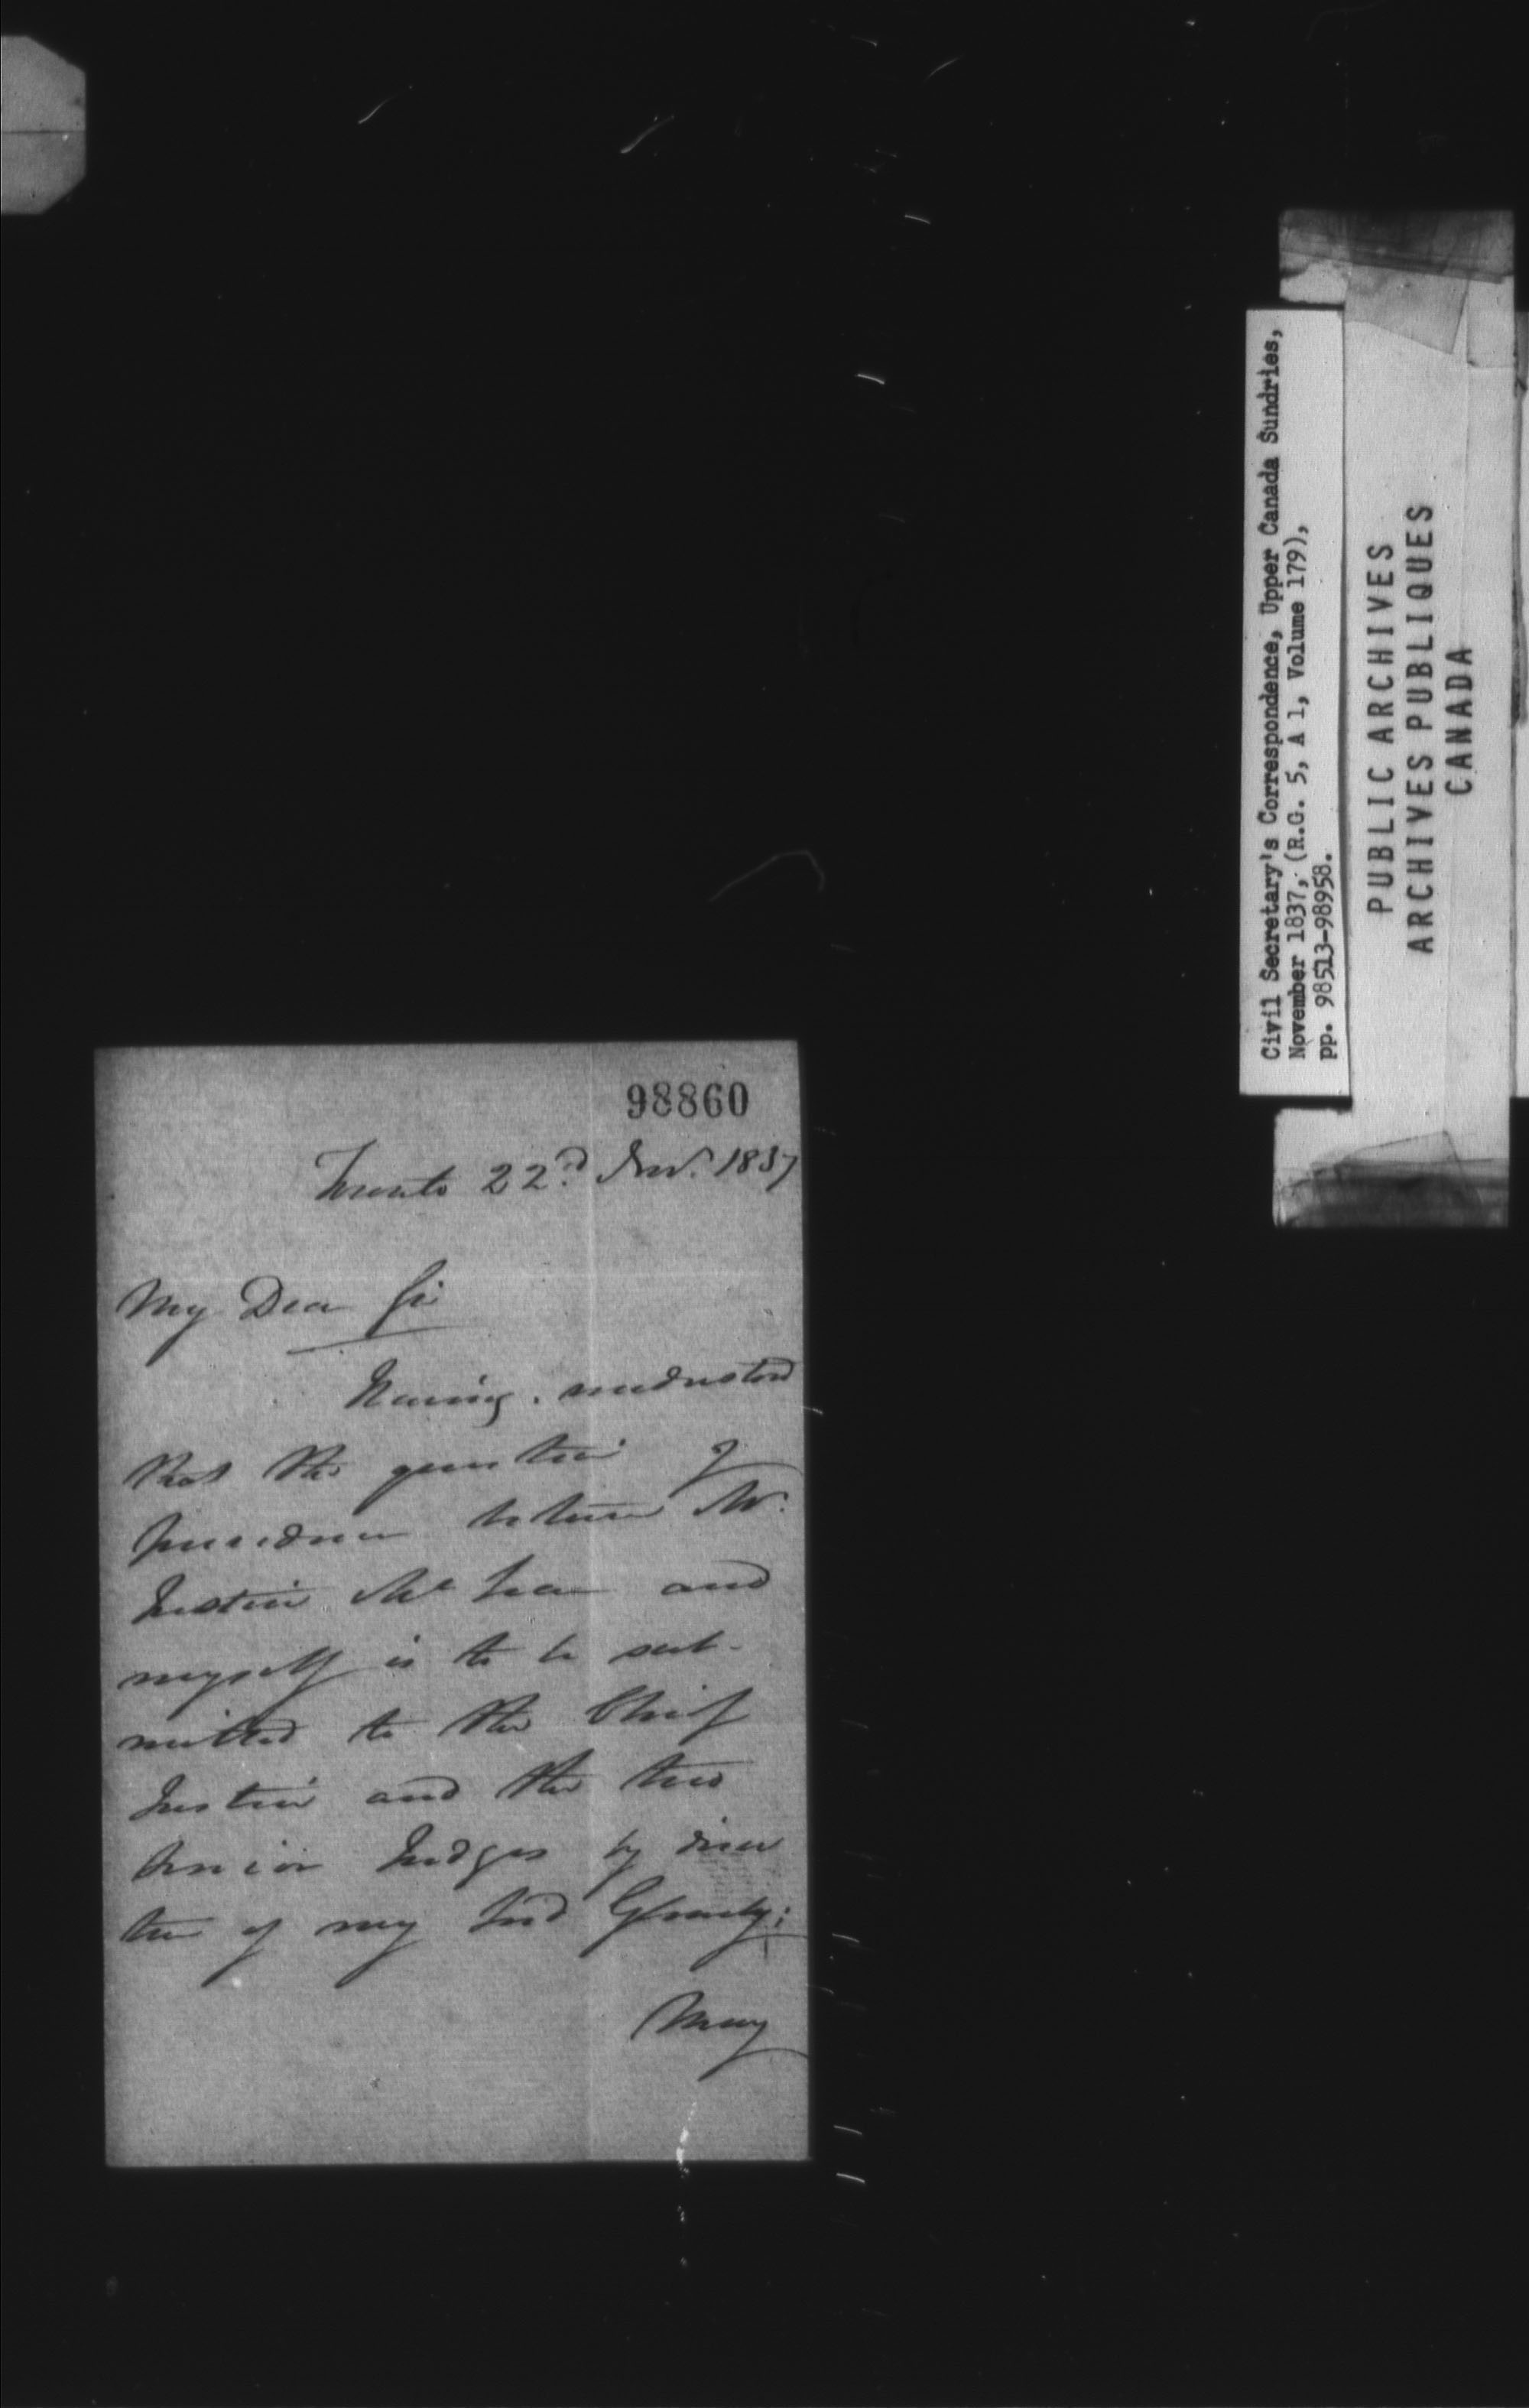 98860
Toronto 22d Nov. 1837
My Dear Sir
Having understood
that the question of
precedence between Mr.
Justice McLean and
myself is to be sub-
mitted to the Chief
Justice and the two
Senior Judges by direc
tion of my Lord Glenelg;
May
Civil Secretary's Correspondence, Upper Canada Sundries,
November 1837, (R.G. 5, A 1, Volume 179),
pp. 98513-98958.
PUBLIC ARCHIVES
ARCHIVES PUBLIQUES
CANADA